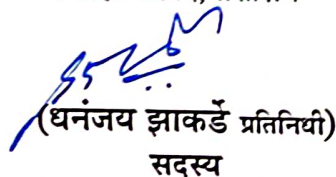 (धनंजय झाकर्डे प्रतिनिधी)
सदस्य